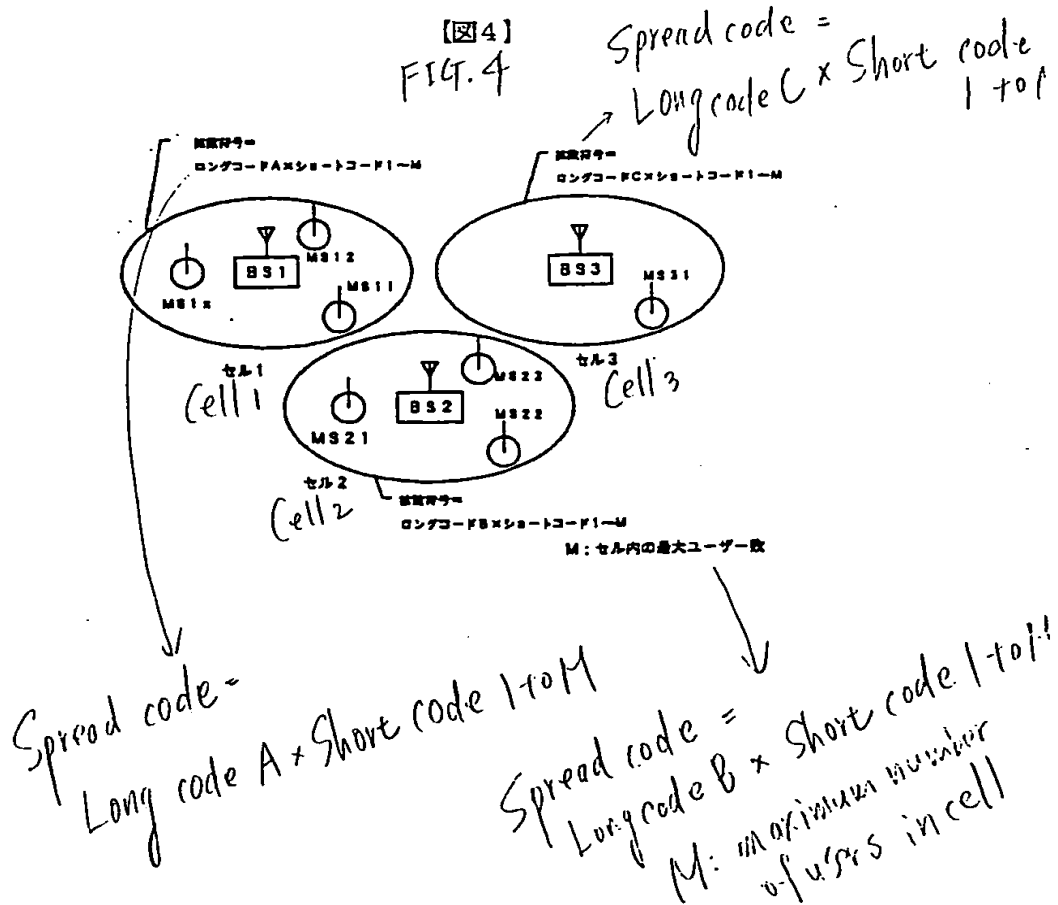 【図4】
FIG.4
Spread code =
Long code C × Short code
1 to
拡散符号=
ロングコードA×ショートコード1~M
拡散符号=
ロングコードC×ショートコード1~M
BS1
MS12
MS11
MS1x
BS3
MS31
セル1
Cell 1
セル3
Cell 3
BS2
MS23
MS22
MS21
セル2
Cell 2
拡散符号=
ロングコードB×ショートコード1~M
M:セル内の最大ユーザー数
Spread code=
Long code A × Short code 1 to M
Spread code =
Long code B × Short code 1 to M
M: maximum number
of users in cell